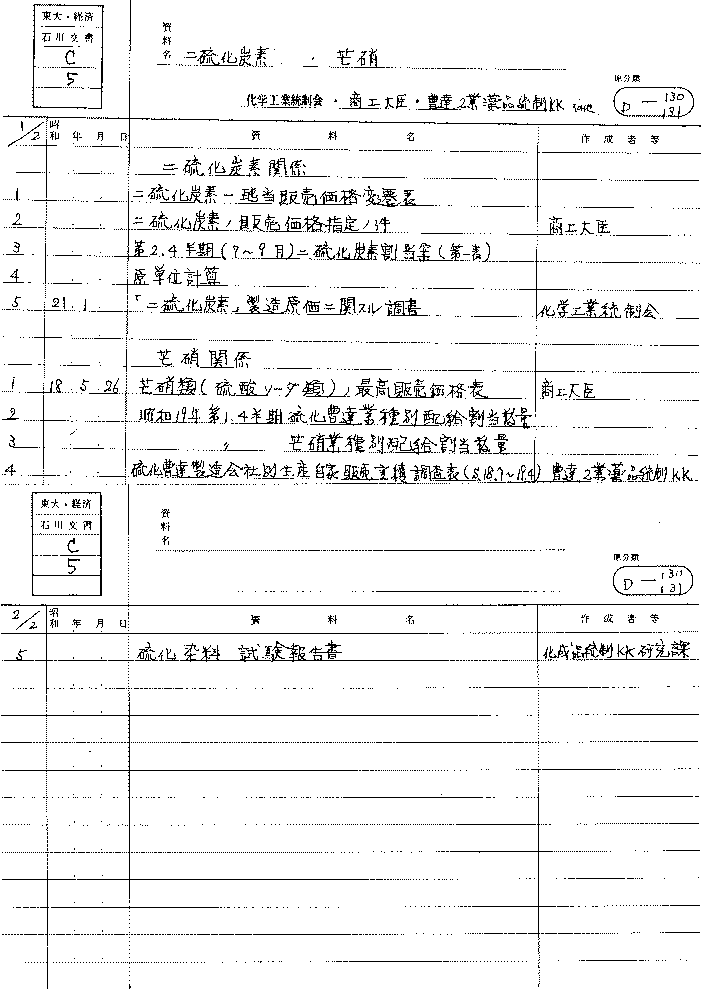 東大・経済
石川文書
C
5
資料名 二硫化炭素 ・ 芒硝
化学工業統制会・商工大臣・曹達工業薬品統制KK
原分類
D－130
131
1/2 昭和 年 月 日 資 料 名 作 成 者 等
二硫化炭素関係
1 二硫化炭素一瓲当販売価格変遷表
2 二硫化炭素ノ販売価格指定ノ件 商工大臣
3 第2.4半期(7～9月)二硫化炭素割当案(第一表)
4 原単位計算
5 21 1 「二硫化炭素」製造原価ニ関スル調書 化学工業統制会
芒硝関係
1 18 5 26 芒硝類(硫酸ソーダ類)ノ最高販売価格表 商工大臣
2 昭和19年第1.4半期硫化曹達業種別配給割当数量
3 〃 芒硝業種別配給割当数量
4 硫化曹達製造会社別生産自家販売実績調査表(S,18.7～19.4) 曹達工業薬品統制KK
東大・経済
石川文書
C
5
資料名
原分類
D－130
131
2/2 昭和 年 月 日 資 料 名 作 成 者 等
5 硫化染料 試験報告書 化成品統制KK研究課